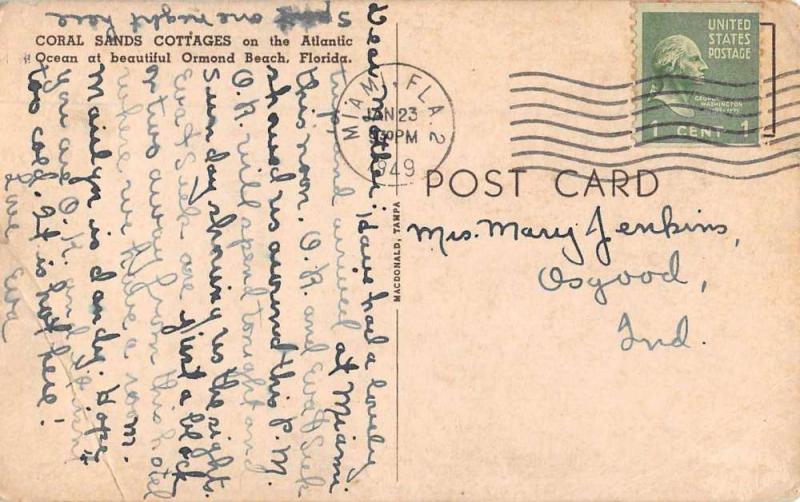 Spent one night here
CORAL SANDS COTTAGES on the Atlantic
Ocean at beautiful Ormond Beach, Florida.
Dear Mother: Have had a lovely
trip and arrived at Miami
this noon. O.K. and Eva & Zeek
showed us around this P.M.
O.K. will spend tonight and
Sunday showing us the sights.
Eva & Zeek are just a block
or two away from this hotel
where we have a room.
Marilyn is dandy. Hope
you are O.K. and it isn't
too cold. It is hot here!
Love Eva
MIAMI, FLA. 2
JAN 23
PM
1949
UNITED
STATES
POSTAGE
GEORGE
WASHINGTON
1 CENT 1
POST CARD
MACDONALD, TAMPA
Mrs. Mary Jenkins,
Osgood,
Ind.